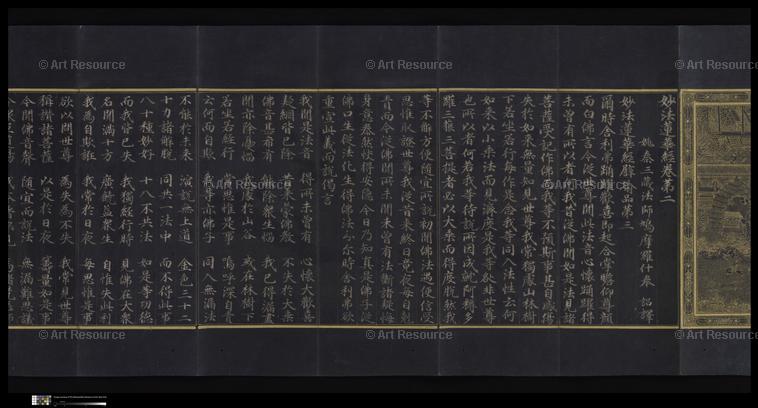 妙法蓮華經卷第二
姚秦三藏法師鳩摩羅什奉 詔譯
妙法蓮華經譬喻品第三
爾時舍利弗踊躍歡喜即起合掌瞻仰尊顏
而白佛言今從世尊聞此法音心懷踊躍得
未曾有所以者何我昔從佛聞如是法見諸
菩薩受記作佛而我等不預斯事甚自感傷
失於如來無量知見世尊我常獨處山林樹
下若坐若行每作是念我等同入法性云何
如來以小乘法而見濟度是我等咎非世尊
也所以者何若我等待說所因成就阿耨多
羅三藐三菩提者必以大乘而得度脫然我
等不解方便隨宜所說初聞佛法遇便信受
思惟取證世尊我從昔來終日竟夜每自剋
責而今從佛聞所未聞未曾有法斷諸疑悔
身意泰然快得安隱今日乃知真是佛子從
佛口生從法化生得佛法分爾時舍利弗欲
重宣此義而說偈言
我聞是法音 得所未曾有 心懷大歡喜
疑網皆已除 昔來蒙佛教 不失於大乘
佛音甚希有 能除眾生惱 我已得漏盡
聞亦除憂惱 我處於山谷 或在林樹下
若坐若經行 常思惟是事 嗚呼深自責
云何而自欺 我等亦佛子 同入無漏法
不能於未來 演說無上道 金色三十二
十力諸解脫 同共一法中 而不得此事
八十種妙好 十八不共法 如是等功德
而我皆已失 我獨經行時 見佛在大眾
名聞滿十方 廣饒益眾生 自惟失此利
我為自欺誑 我常於日夜 每思惟是事
欲以問世尊 為失為不失 我常見世尊
稱讚諸菩薩 以是於日夜 籌量如此事
今聞佛音聲 隨宜而說法 無漏難思議
© Art Resource
© Art Resource
© Art Resource
© Art Resource
© Art Resource
© Art Resource
© Art Resource
© Art Resource
© Art Resource
© Art Resource
© Art Resource
© Art Resource